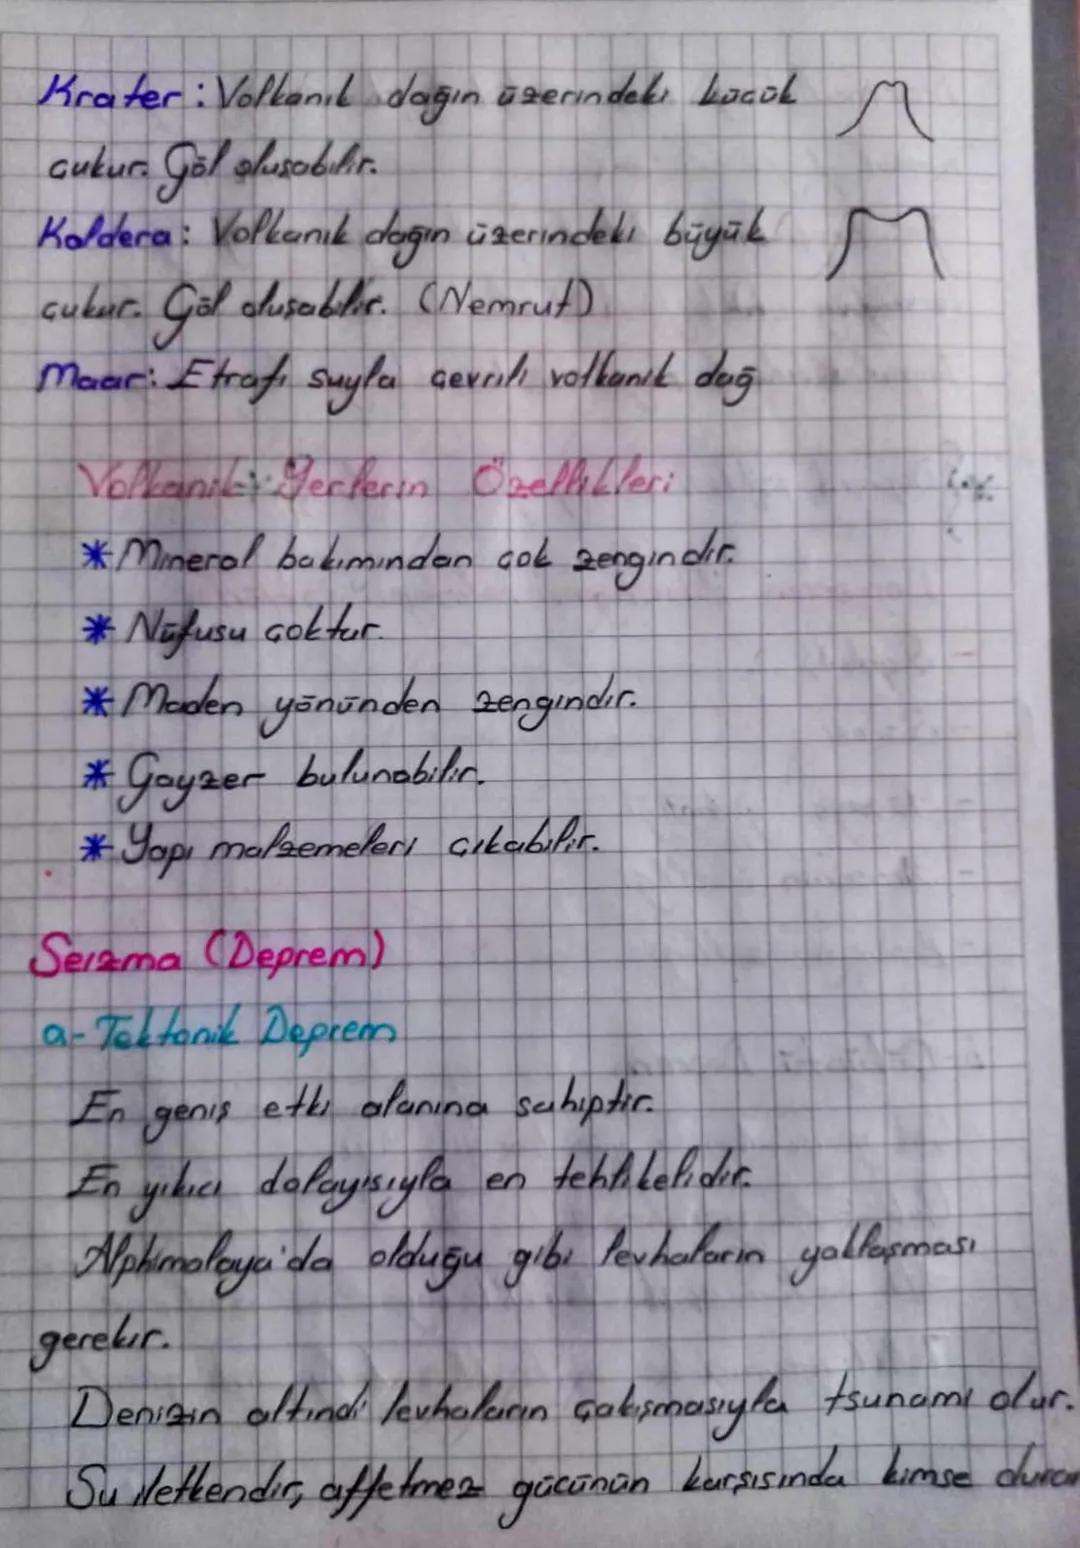 Krater: Volkanik dağın üzerindeki küçük
çukur. Göl oluşabilir.
Kaldera: Volkanik dağın üzerindeki büyük
çukur. Göl oluşabilir. (Nemrut)
Maar: Etrafı suyla çevrili volkanik dağ
Volkanik Yerlerin Özellikleri
* Mineral bakımından çok zengindir.
* Nüfusu çoktur.
* Maden yönünden zengindir.
* Gayzer bulunabilir.
* Yapı malzemeleri çıkabilir.
Seizma (Deprem)
a- Tektonik Deprem
En geniş etki alanına sahiptir.
En yıkıcı dolayısıyla en tehlikelidir.
Alphimalaya'da olduğu gibi levhaların yaklaşması
gerekir.
Denizin altındı levhaların çakışmasıyla tsunami olur.
Su affetmez gücünün karşısında kimse